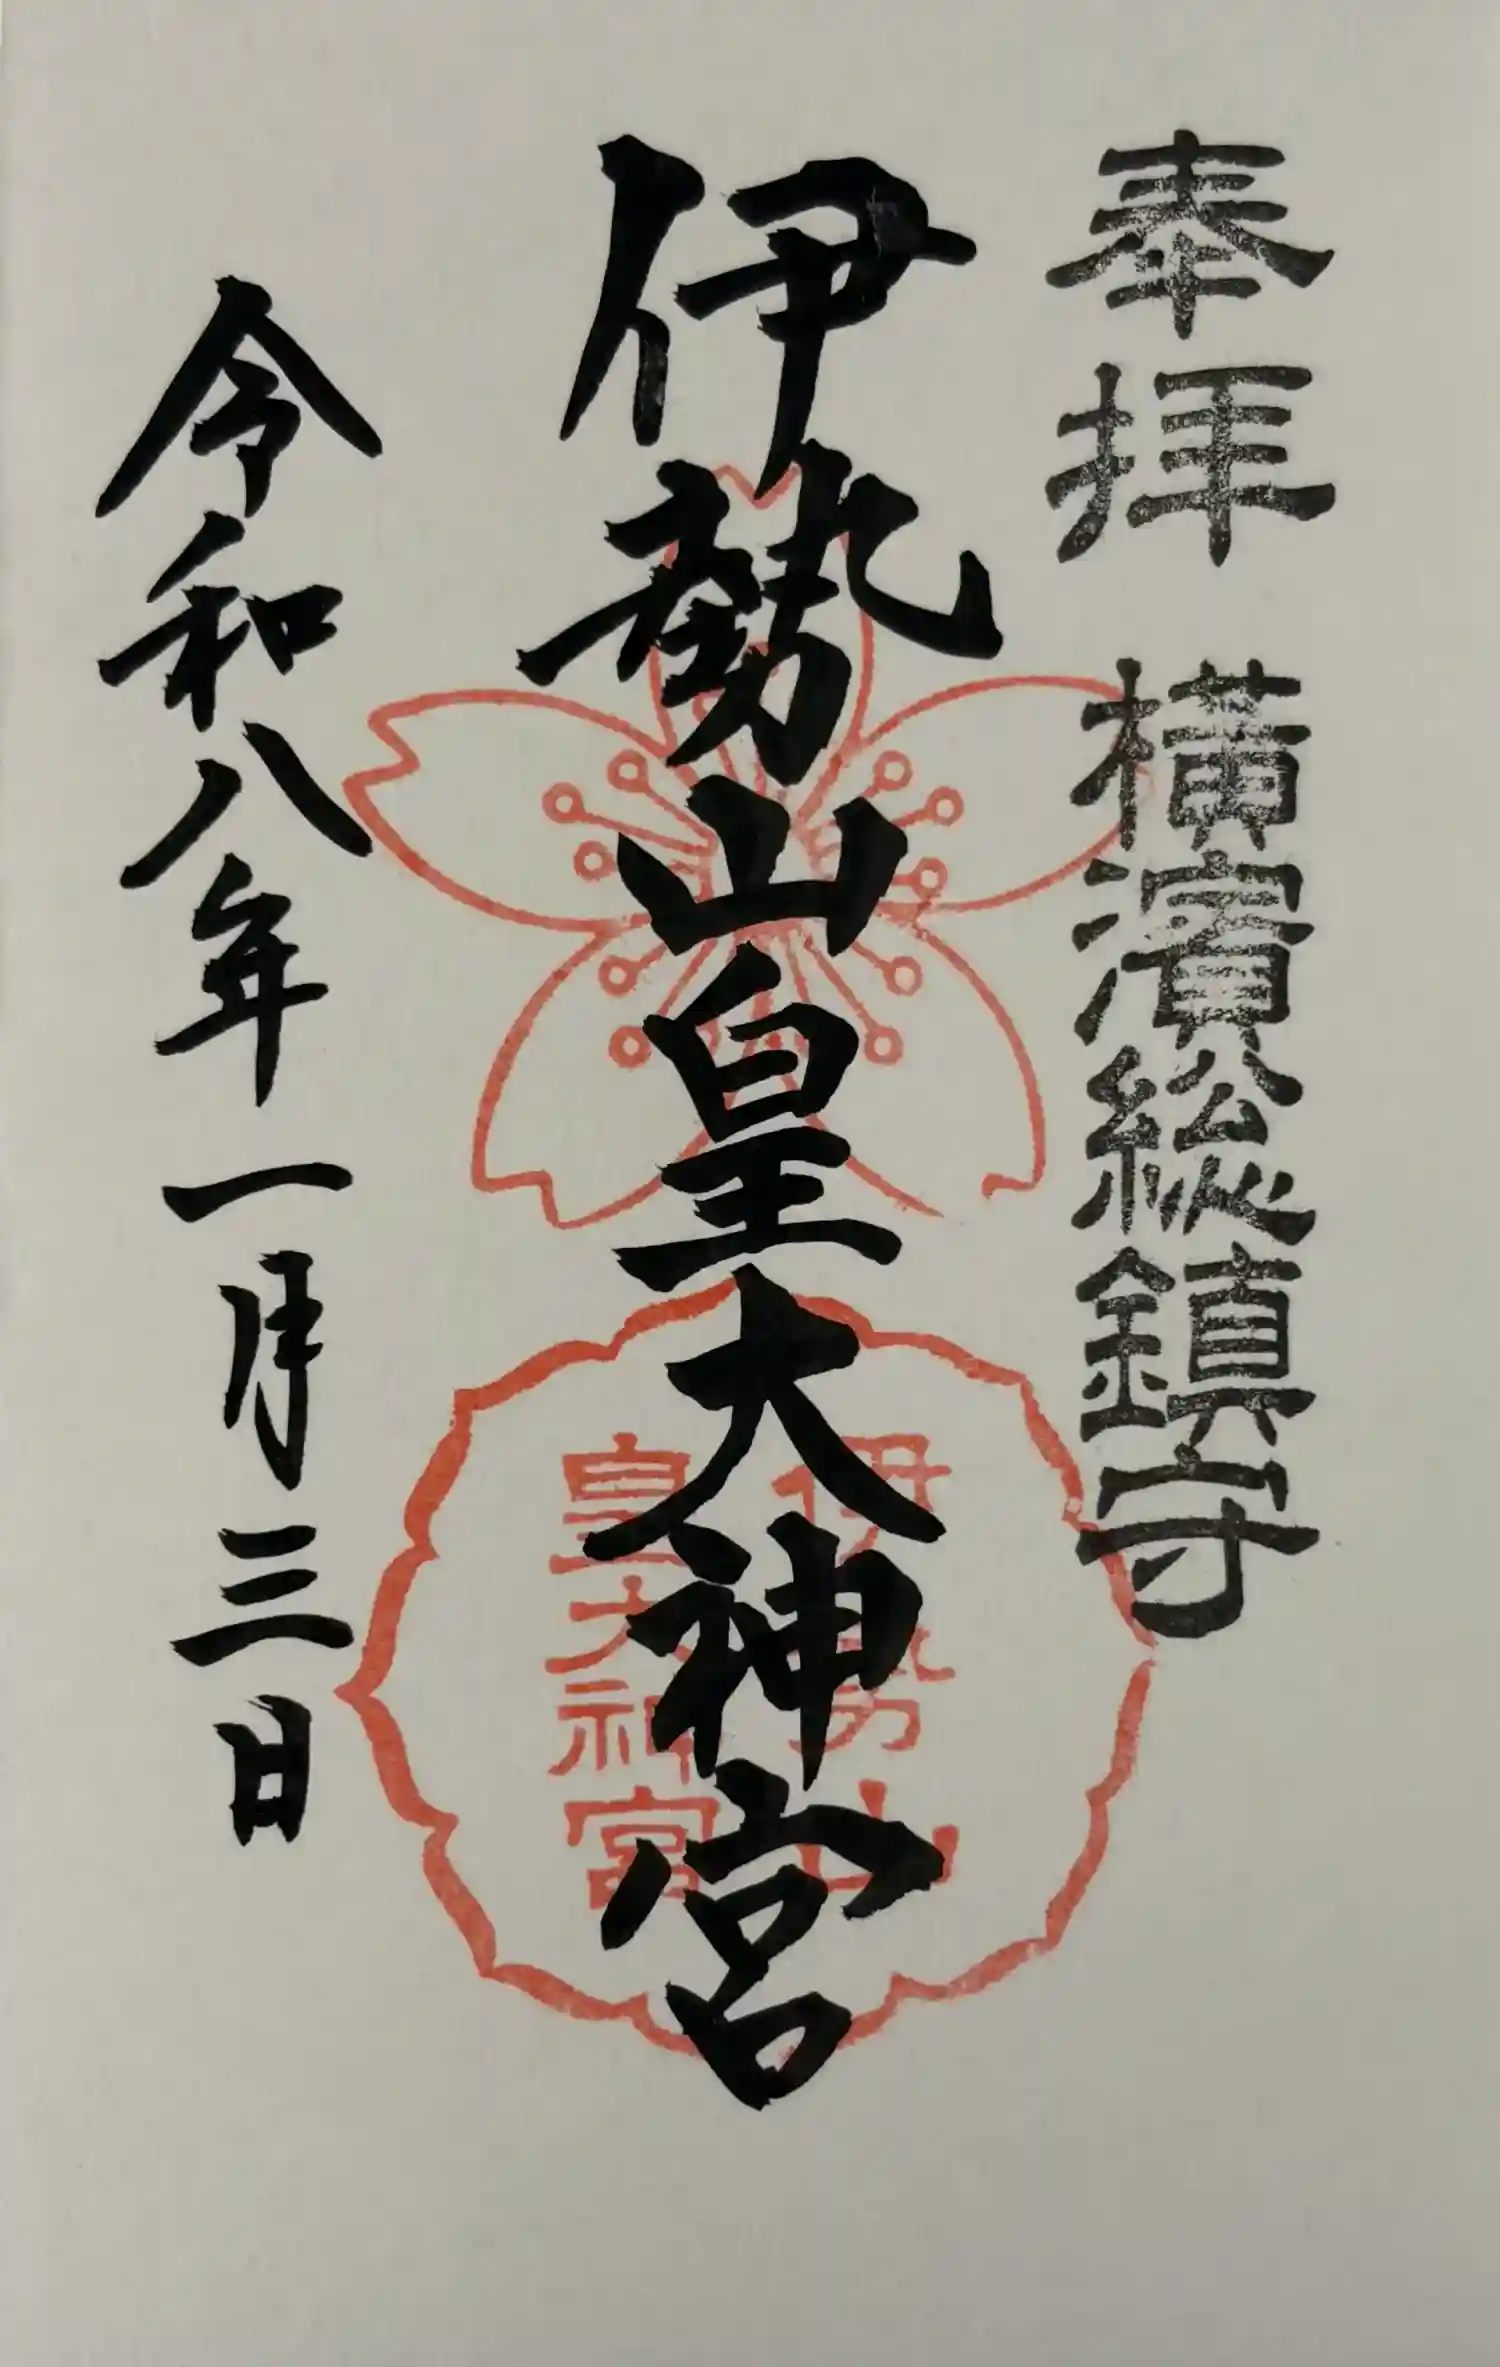 奉拝 横濱総鎮守
伊勢山皇大神宮
伊勢山
皇大神宮
令和八年一月三日